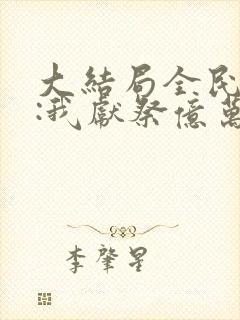 大結局全民
:我獻祭億萬
李肇星